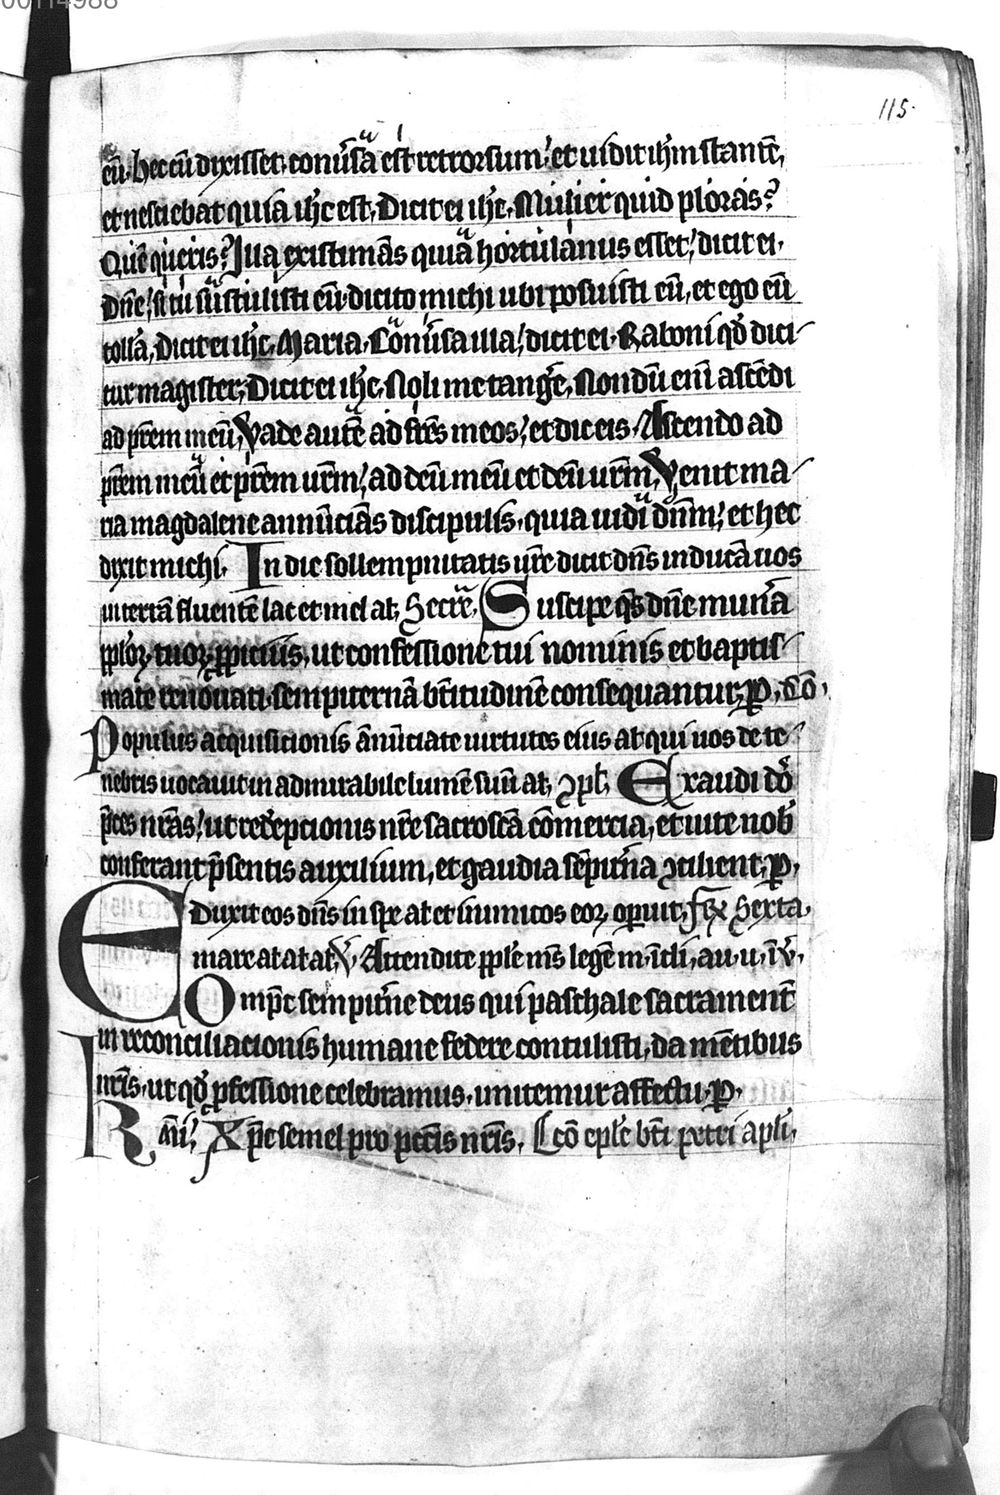 00114988
115.
eū. hec cū dixisset. conūsa est retrorsum: et uidit ihm̄ stantē,
et nesciebat quia ihc̄ est. Dicit ei ihc̄. Mulier quid ploras?
Quē queris? Illa existimās quia hortulanus esset: dicit ei.
Dn̄e: si tu sustulisti eū. dicito michi ubi posuisti eū, et ego eū
tollā. Dicit ei ihc̄. Maria. Conūsa illa: dicit ei. Raboni qd̄ dici
tur magister. Dicit ei ihc̄. Noli me tangē. Nondū eni ascēdi
ad prēm meū. Vade autē ad frēs meos: et dic eis. Ascendo ad
prēm meū et prēm urm̄: ad deū meū et deū urm̄. Venit ma
ria magdalene annūciās discipulis. quia uidi dn̄m: et hec
dixit michi. In die sollempnitatis ure dicit dn̄s inducā uos
in terrā fluentē lac et mel aꝉ. Secrē. Suscipe qs̄ dn̄e munā
pploꝝ tuoꝝ ꝓpicius. ut confessione tui nominis et baptis
mate renouati. sempiternā btitudinē consequantur. ꝑ. Cō.
Populus acquisicionis annūciate uirtutes eius aꝉ qui uos de te
nebris uocauit in admirabile lumē suū aꝉ. Ɔpl. Exaudi dō
preces nrās: ut redēpcionis nrē sacrosctā cōmercia. et uite nob
conferant psentis auxilium. et gaudia sēpitna ɔcilient. ꝑ.
Eduxit eos dn̄s in spe aꝉ et inimicos eoꝝ opuit. fꝫ Sexta.
mare aꝉ aꝉ aꝉ. V̄. Attendite pple ms̄ legē m.
Omp̄s sempitne deus qui paschale sacramentū
in reconciliacionis humane federe contulisti. da mētibus
nrīs. ut qd̄ pfessione celebramus. imitemur affectu. ꝑ.
Xpc̄ semel pro pctīs nrīs. Lcō eple bti petri apli.